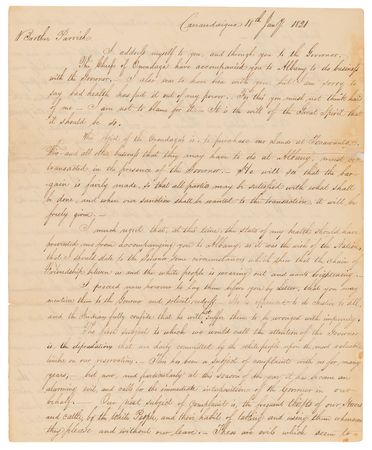 Canandaigua 18th Jany 1821
Brother Parrish.
I address myself to you, and through you to the Governor.
The Chiefs of Onondaga have accompanied you to Albany to do business
with the Governor. I also was to have been with you, but I am sorry to
say bad health has put it out of my power. For this you must not think hard
of me — I am not to blame for it — It is the will of the Great Spirit that
it should be so.
The object of the Onondaga's is, to purchase our Lands at Tonawanta —
This and all other business that they may have to do at Albany, must be
transacted in the presence of the Governor. — He will see that the bar-
gain is fairly made, so that all parties may be satisfied with what shall
be done, and when our sanction shall be wanted to the transaction, it will be
freely given. —
I much regret that, at this time, the state of my health should have
prevented me from accompanying you to Albany, as it was the wish of the Nation
that I should state to the Governor some circumstances which shew that the chain of
Friendship between us and the white people is wearing out and wants brightening. —
I proceed now however to lay them before you by Letter, that you may
mention them to the Governor and solicit redress. He is appointed to do Justice to all,
and the Indians fully confide that he will not suffer them to be wronged with impunity.
The first subject to which we would call the attention of the Governor
is the depredations that are daily committed by the white people upon the most valuable
timber on our reservations. This has been a subject of complaint with us for many
years, — but now, and particularly at this season of the year, it has become an
alarming evil, and calls for the immediate interposition of the Governor in our
behalf. — Our next subject of complaint is, the frequent thefts of our Horses
and cattle, by the white People, and their habit of taking and using them whenever
they please and without our leave. — These are evils which seem to